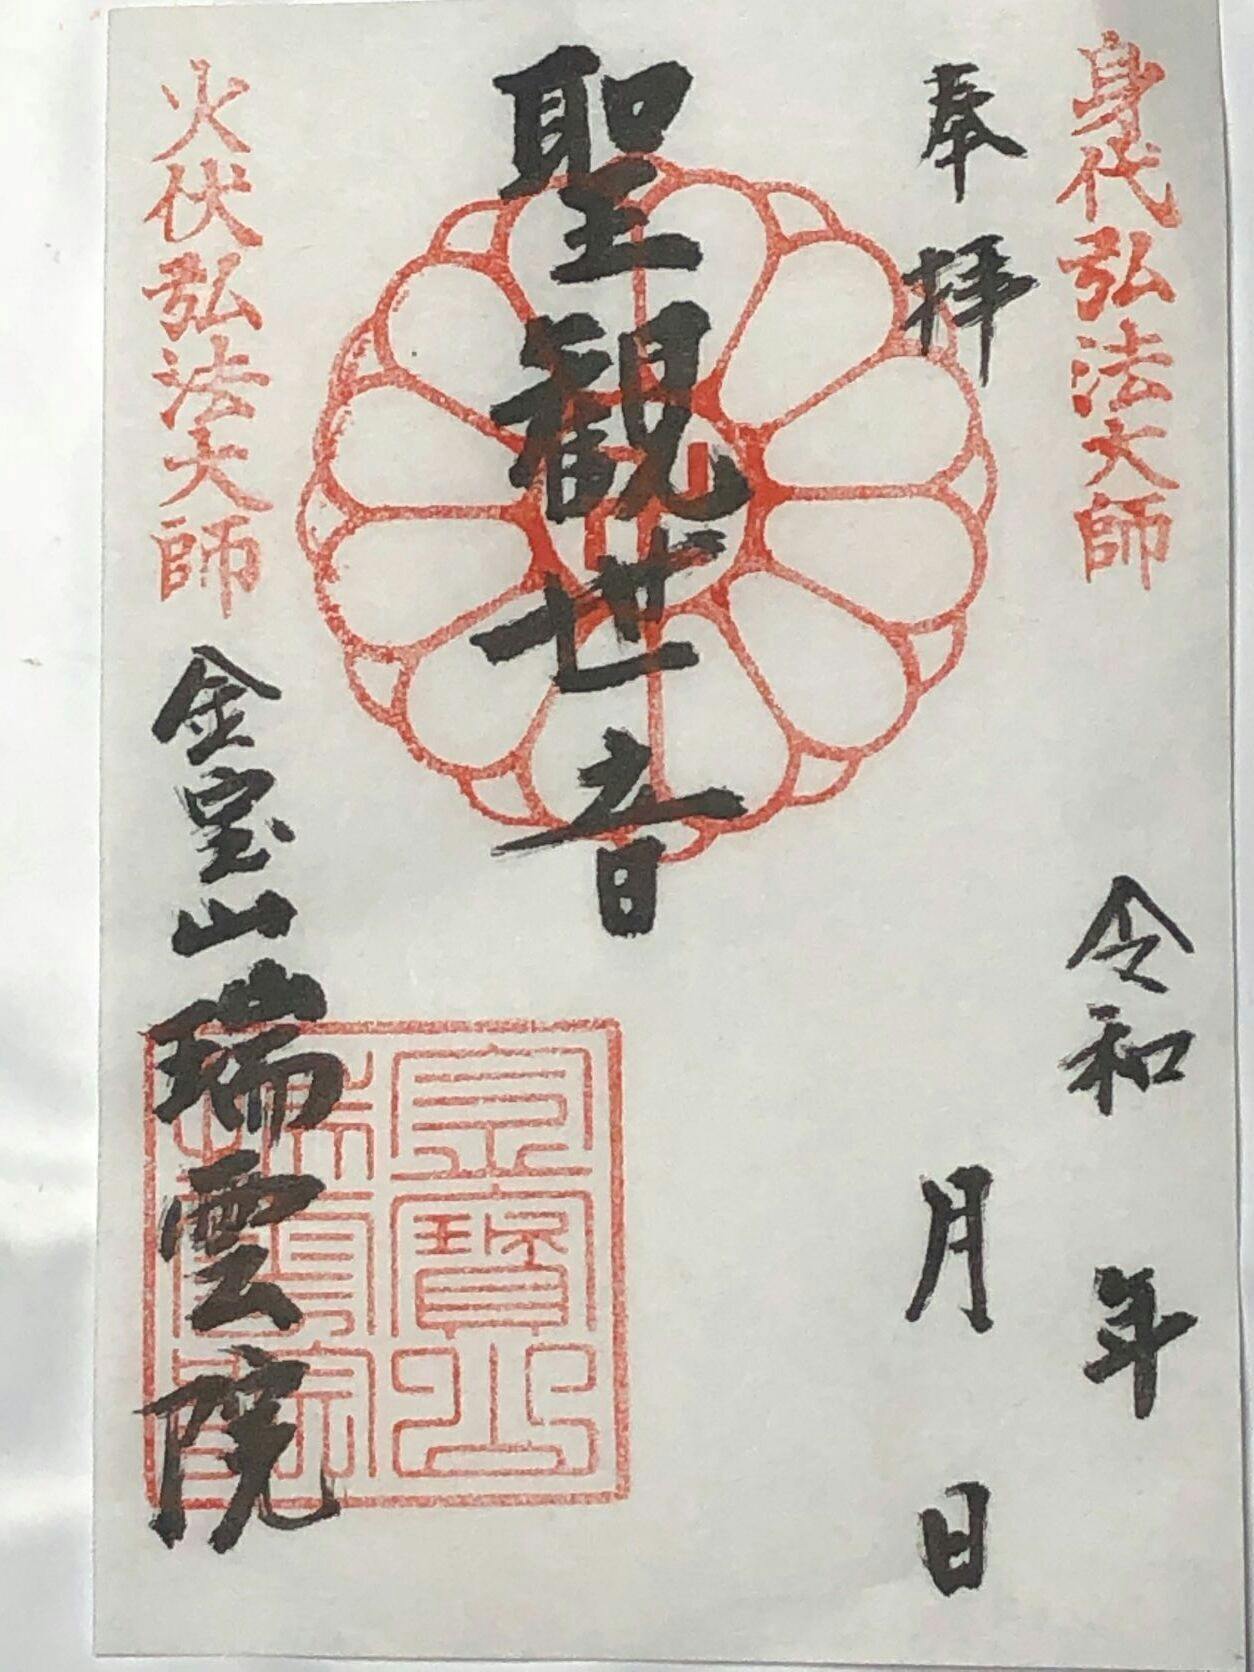 身代弘法大師
奉拝
令和 年
月 日
聖観世音
火伏弘法大師
金宝山瑞雲院
金寶山
瑞雲院